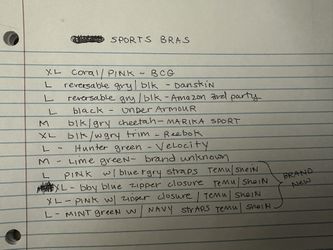 SPORTS BRAS
XL coral/PINK - BCG
L reversable gry/blk - Danskin
L reversable gry/blk - Amazon 3rd party
L black - UnDer Armour
M blk/gry cheetah - MARIKA SPORT
XL blk/wgry trim - Reebok
L - Hunter green - Velocity
M - Lime green - brand unknown
L PINK w/ blue & gry straps TEMU/SheIN
XL - bby blue zipper closure TEMU/SheIN
XL - PINK w/ zipper closure / TEMU/SheIN
L - MINT green w/ NAVY straps TEMU/SheIN
BRAND NEW